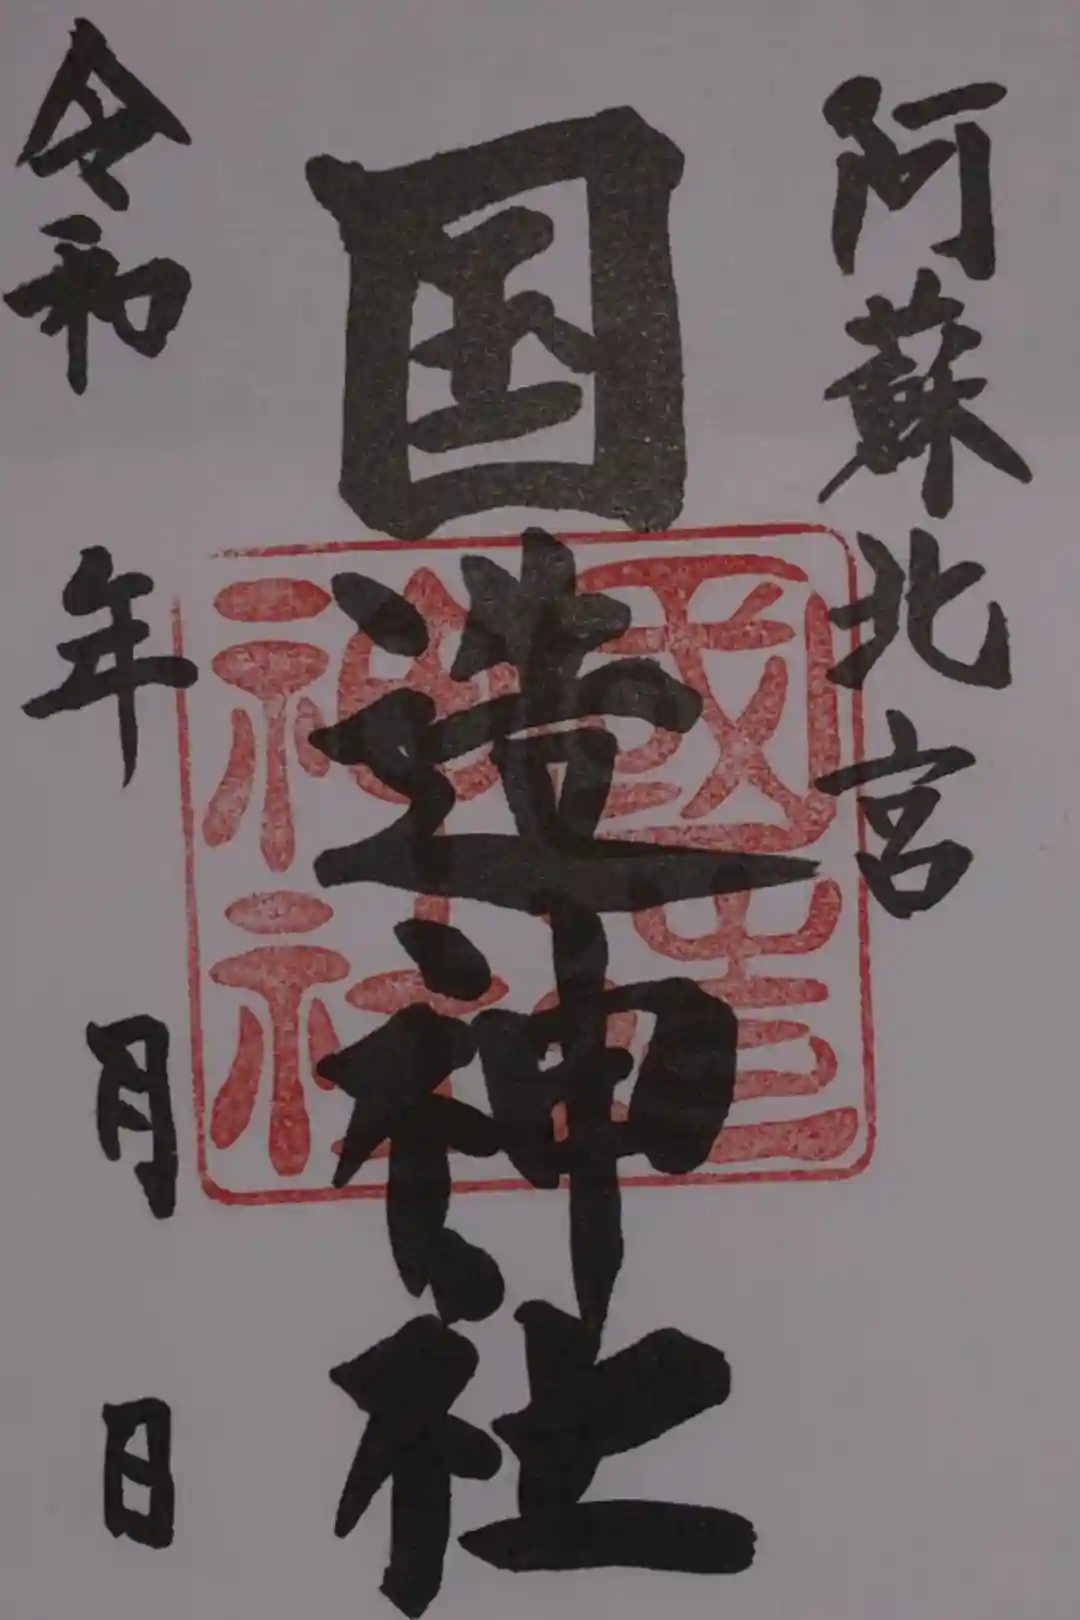 阿蘇北宮
国造神社
國造
神社
令和 年 月 日